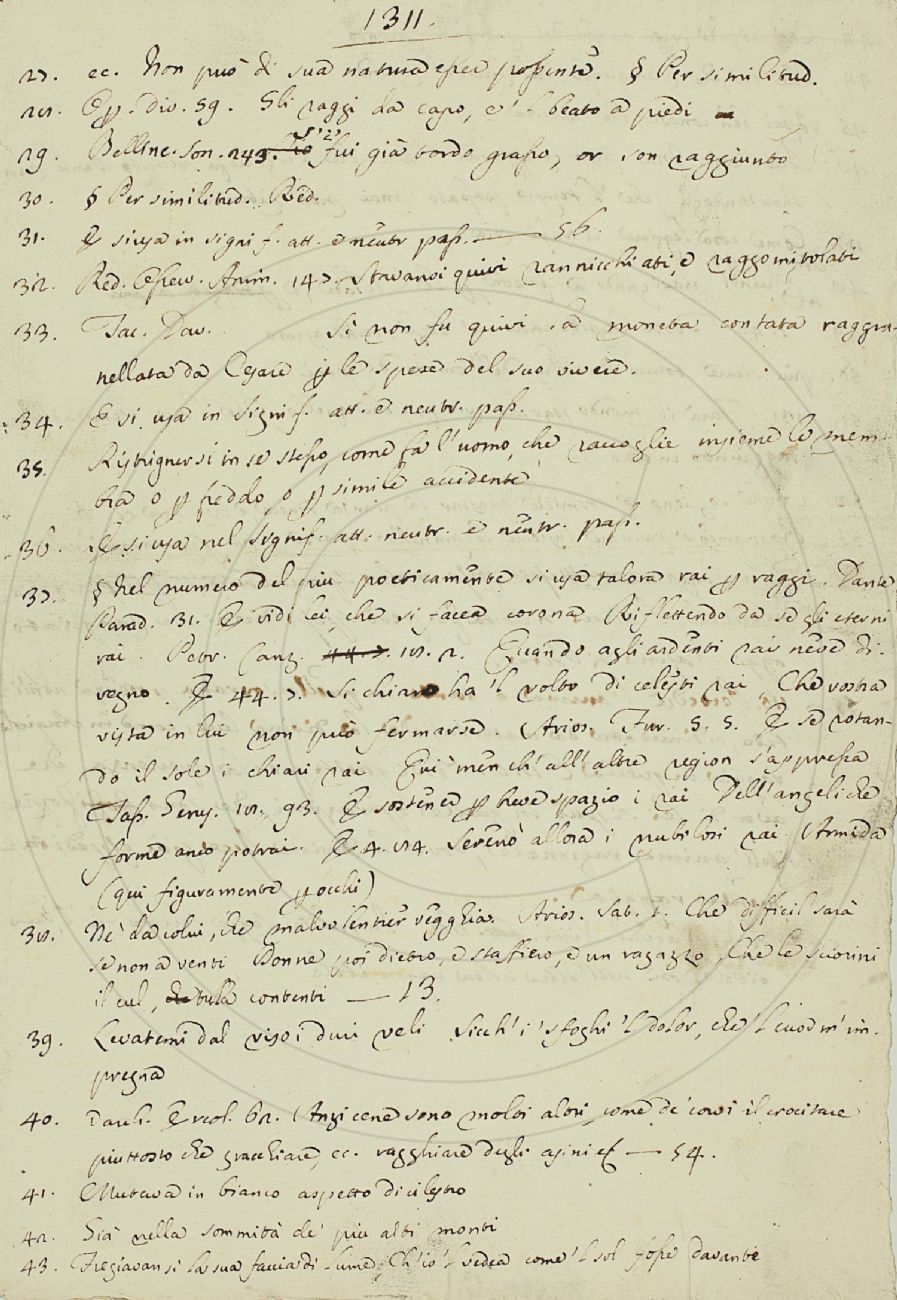 1311.
27. ec. Non può di sua natura esser possente. § Per similitud.
28. Opp. div. 59. Gli raggi da capo, e 'l beato a piedi
29. Bellinc. son. 243. fui già tordo grasso, or son raggiunto
30. § Per similitud. Red.
31. E si usa in signif. att. e neutr. pass. — 56.
32. Red. Osserv. Anim. 147. Stavanoi quivi rannicchiati, e raggomitolati
33. Tac. Dav. Si non fu quivi la moneta contata raggra-
nellata da Cesare p le spese del suo vivere.
34. E si usa in signif. att. e neutr. pass.
35. Ristrignersi in se stesso, come fa l'uomo, che raccoglie insieme le mem-
bra o p freddo, o p simile accidente
36. E si usa nel signif. att. neutr. e neutr. pass.
37. § Nel numero del più poeticamente si usa talora rai p raggi. Dante
Parad. 31. E vidi lei, che si facea corona Riflettendo da se gli eterni
rai. Petr. Canz. 18. 2. Quando agli ardenti rai neve di-
vegno. E 44. 7. Si chiaro ha 'l volto di celesti rai, Che vostra
vista in lui non può fermarse. Arios. Fur. 5. 5. E se rotan-
do il sole i chiari rai Qui men ch'all'altre region s'appressa
Tass. Gerus. 18. 93. E sostener p breve spazio i rai Dell'angeliche
forme anco potrai. E 4. 84. Serenò allora i nubilosi rai Armida
(qui figuramente p occhi)
38. Nè da colui, che malvolentier vegghia. Arios. Sat. 1. Che difficil sarà
se non a venti Donne poi dietro, e staffiero, e un ragazzo, Che le sciorini
il cul, tu la contenti — 13.
39. Levatemi dal viso i duri veli Sicch'i' sfoghi 'l dolor, che 'l cuor m'im-
pregna
40. Varch. Ercol. 62. Anzi cene sono molti altri, come de' corvi il crocitare
piuttosto che gracchiare, ec. ragghiare degli asini — 54.
41. Mutava in bianco aspetto di cilestro
42. Già nella sommità de' più alti monti
43. Fregiavansi la sua faccia di lume, Ch'io 'l vedea come 'l sol fosse davante